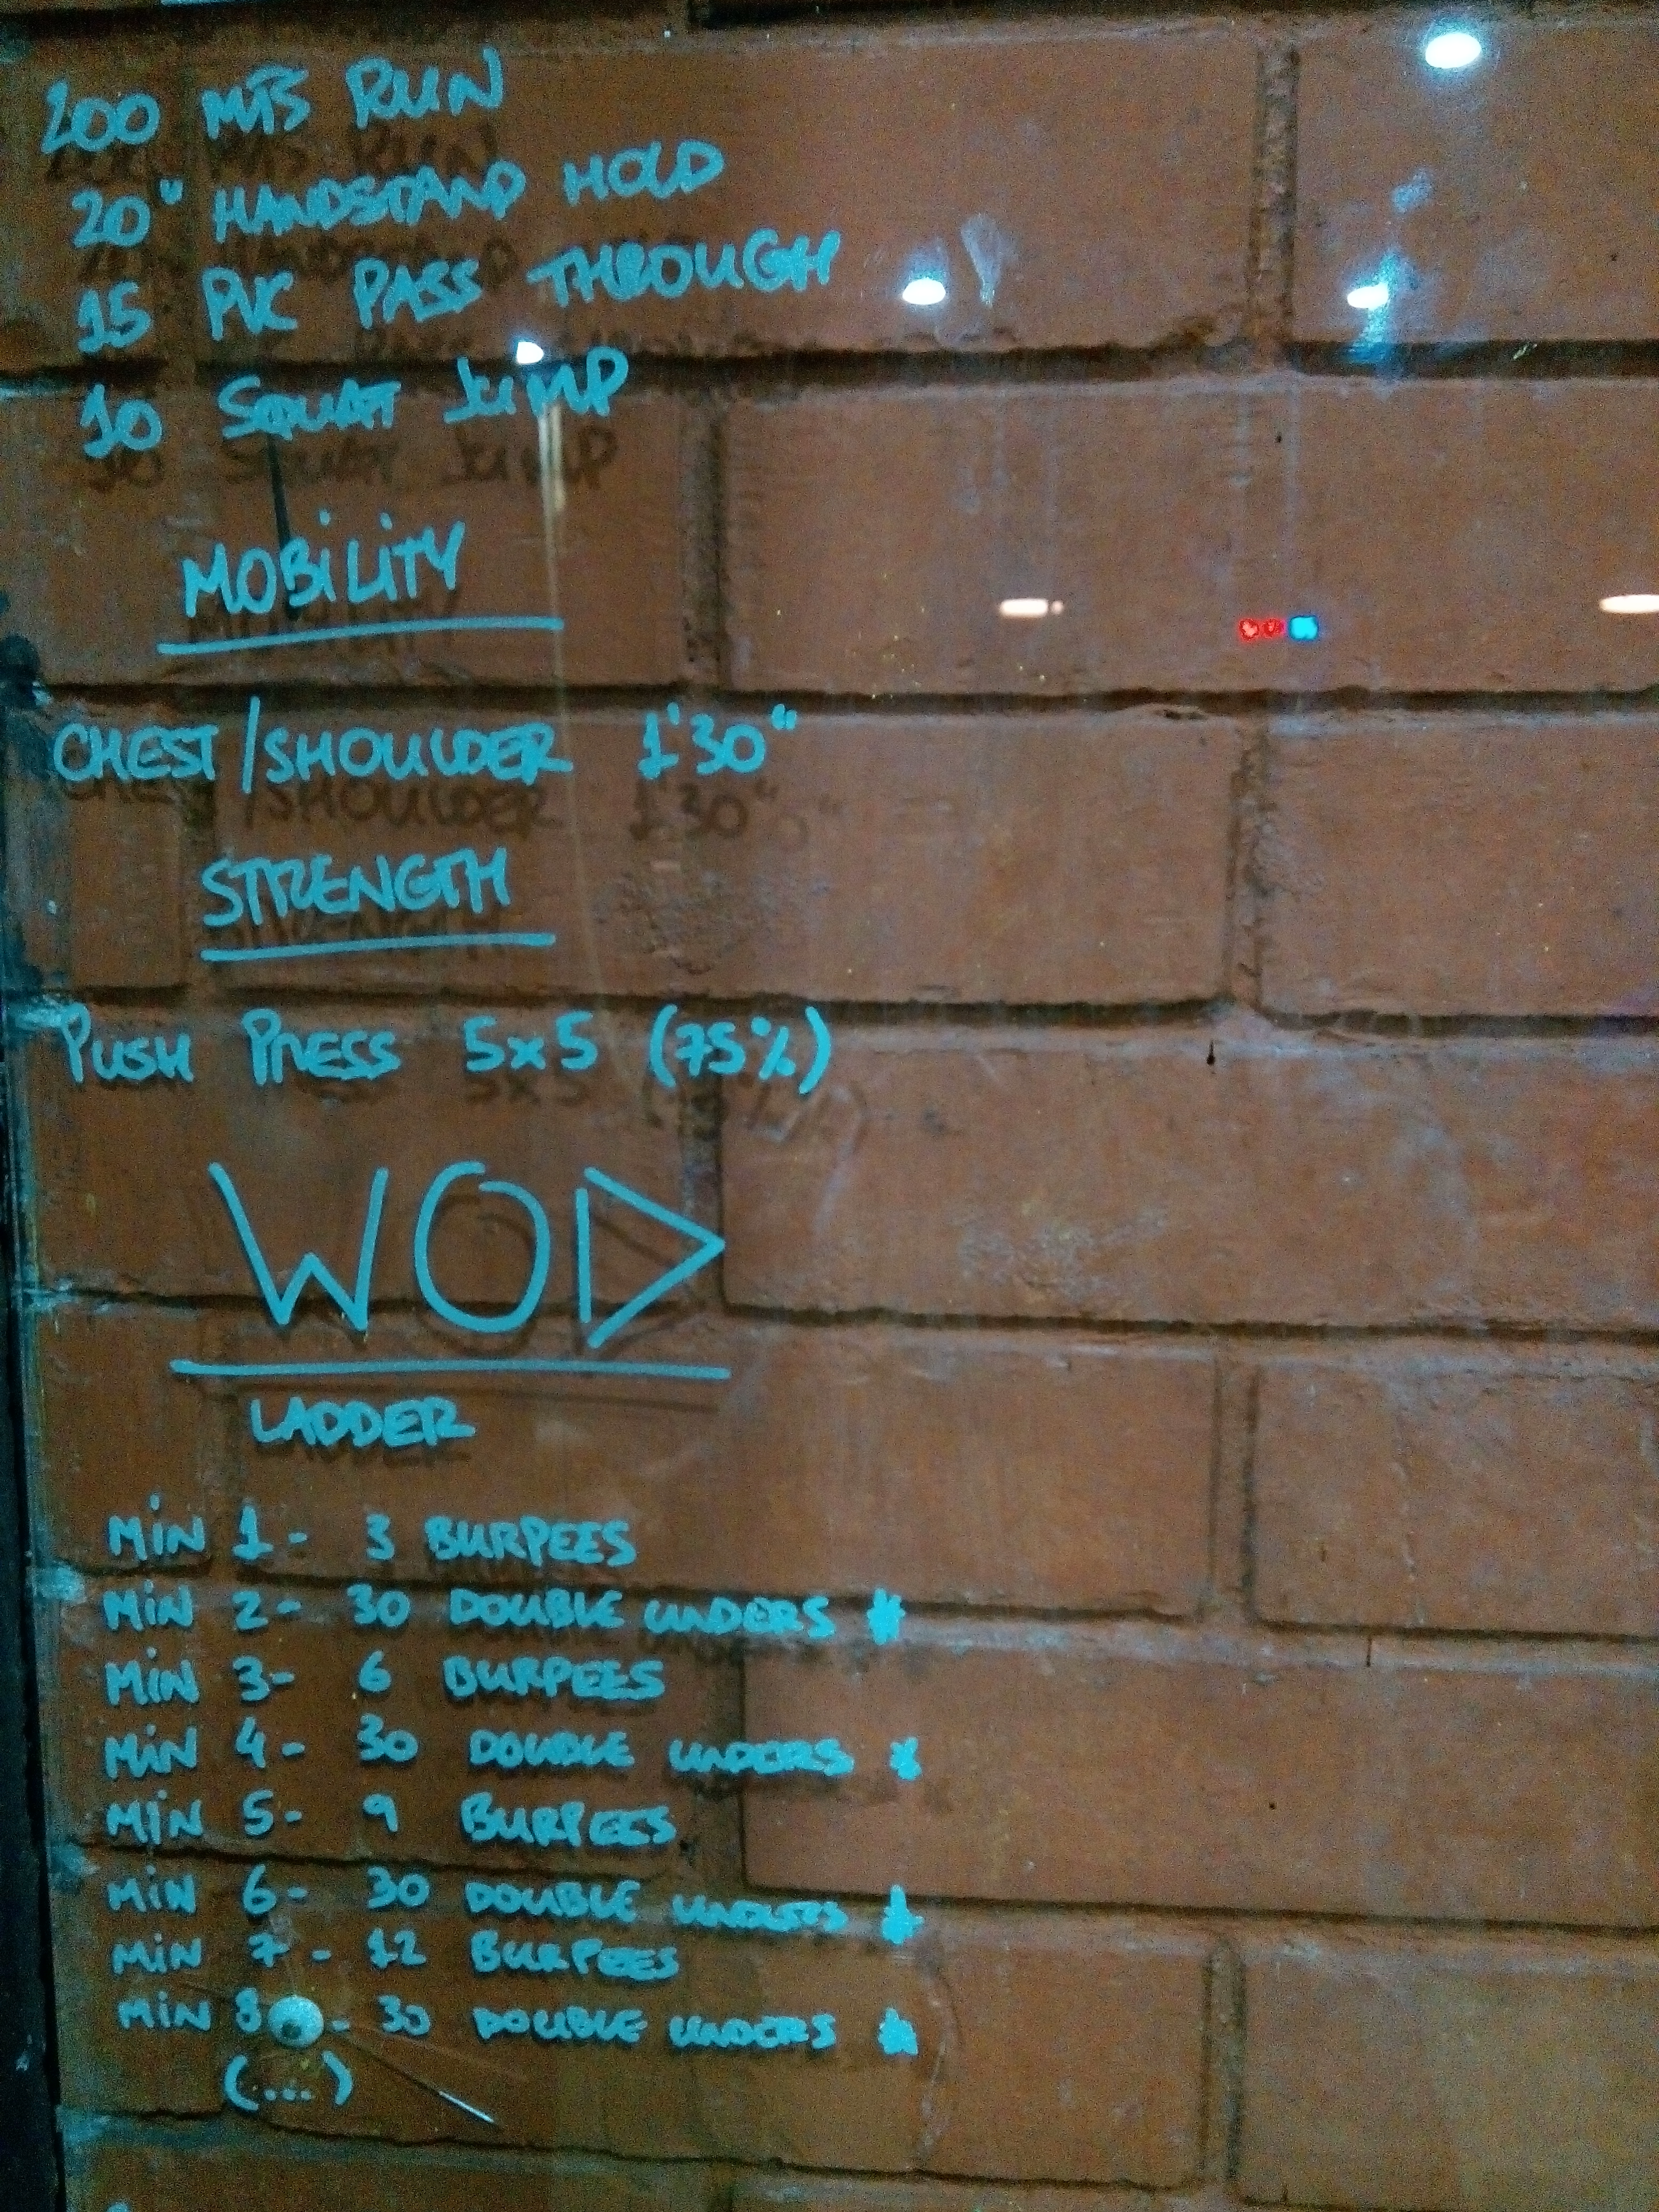 200 MTS RUN
20" HANDSTAND HOLD
15 PVC PASS THROUGH
10 SQUAT JUMP
MOBILITY
CHEST/SHOULDER 1'30"
STRENGTH
PUSH PRESS 5x5 (75%)
WOD
LADDER
MIN 1- 3 BURPEES
MIN 2- 30 DOUBLE UNDERS *
MIN 3- 6 BURPEES
MIN 4- 30 DOUBLE UNDERS *
MIN 5- 9 BURPEES
MIN 6- 30 DOUBLE UNDERS *
MIN 7- 12 BURPEES
MIN 8 - 30 DOUBLE UNDERS *
(...)